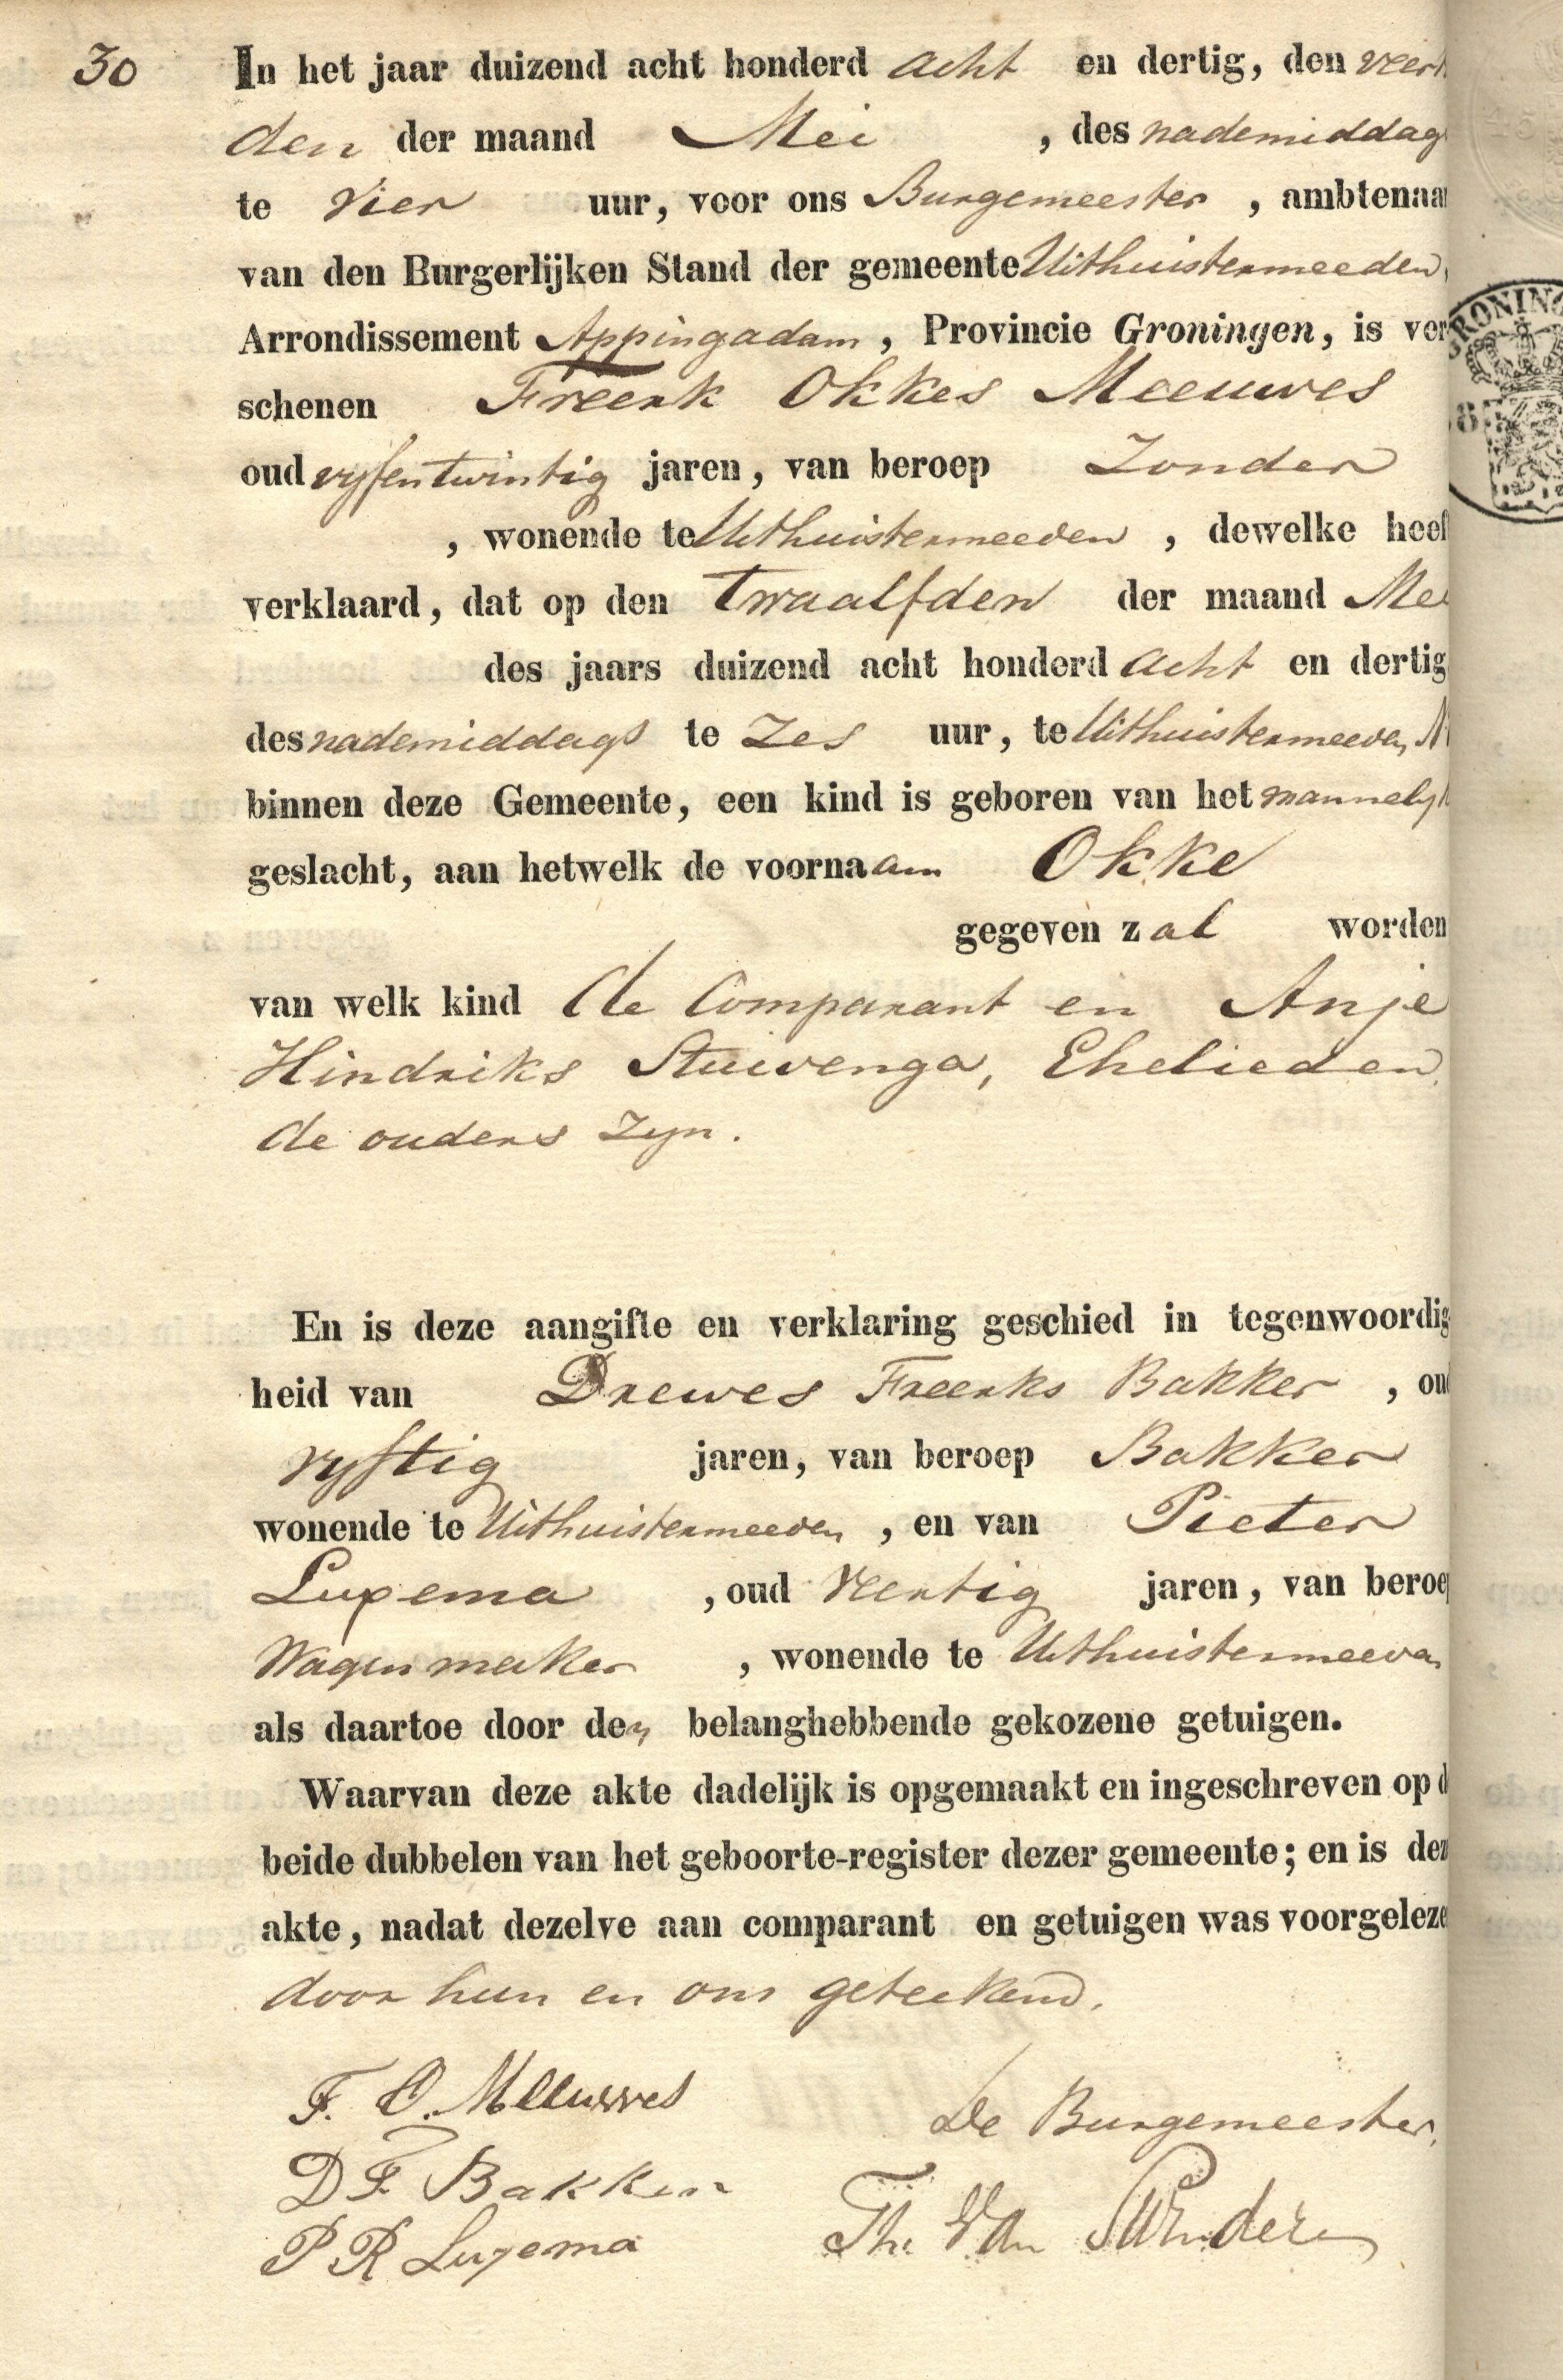 30 In het jaar duizend acht honderd acht en dertig, den veer
den der maand Mei , des nademiddag
te Vier uur, voor ons Burgemeester , ambtenaar
van den Burgerlijken Stand der gemeente Uithuistermeeden,
Arrondissement Appingadam, Provincie Groningen, is ver
schenen Freerk Okkes Meeuwes
oud vyfentwintig jaren, van beroep Zonder
, wonende te Uithuistermeeden , dewelke heef
verklaard, dat op den Twaalfden der maand Mei
des jaars duizend acht honderd acht en dertig
des nademiddags te Zes uur, te Uithuistermeeden
binnen deze Gemeente, een kind is geboren van het mannelyk
geslacht, aan hetwelk de voornaam Okke
gegeven zal worden
van welk kind de Comparant en Anje
Hindriks Stuivenga, Ehelieden,
de ouders zyn.
En is deze aangifte en verklaring geschied in tegenwoordig
heid van Drewes Freerks Bakker , oud
vyftig jaren, van beroep Bakker
wonende te Uithuistermeeden , en van Pieter
Luxema , oud Veertig jaren, van beroep
Wagenmaker , wonende te Uithuistermeeden
als daartoe door den belanghebbende gekozene getuigen.
Waarvan deze akte dadelijk is opgemaakt en ingeschreven op d
beide dubbelen van het geboorte-register dezer gemeente; en is dez
akte, nadat dezelve aan comparant en getuigen was voorgeleze
door hun en ons geteekend.
F. O. Meeuwes
De Burgemeester,
D F Bakker
P R Luxema
Th. Van
GRONING